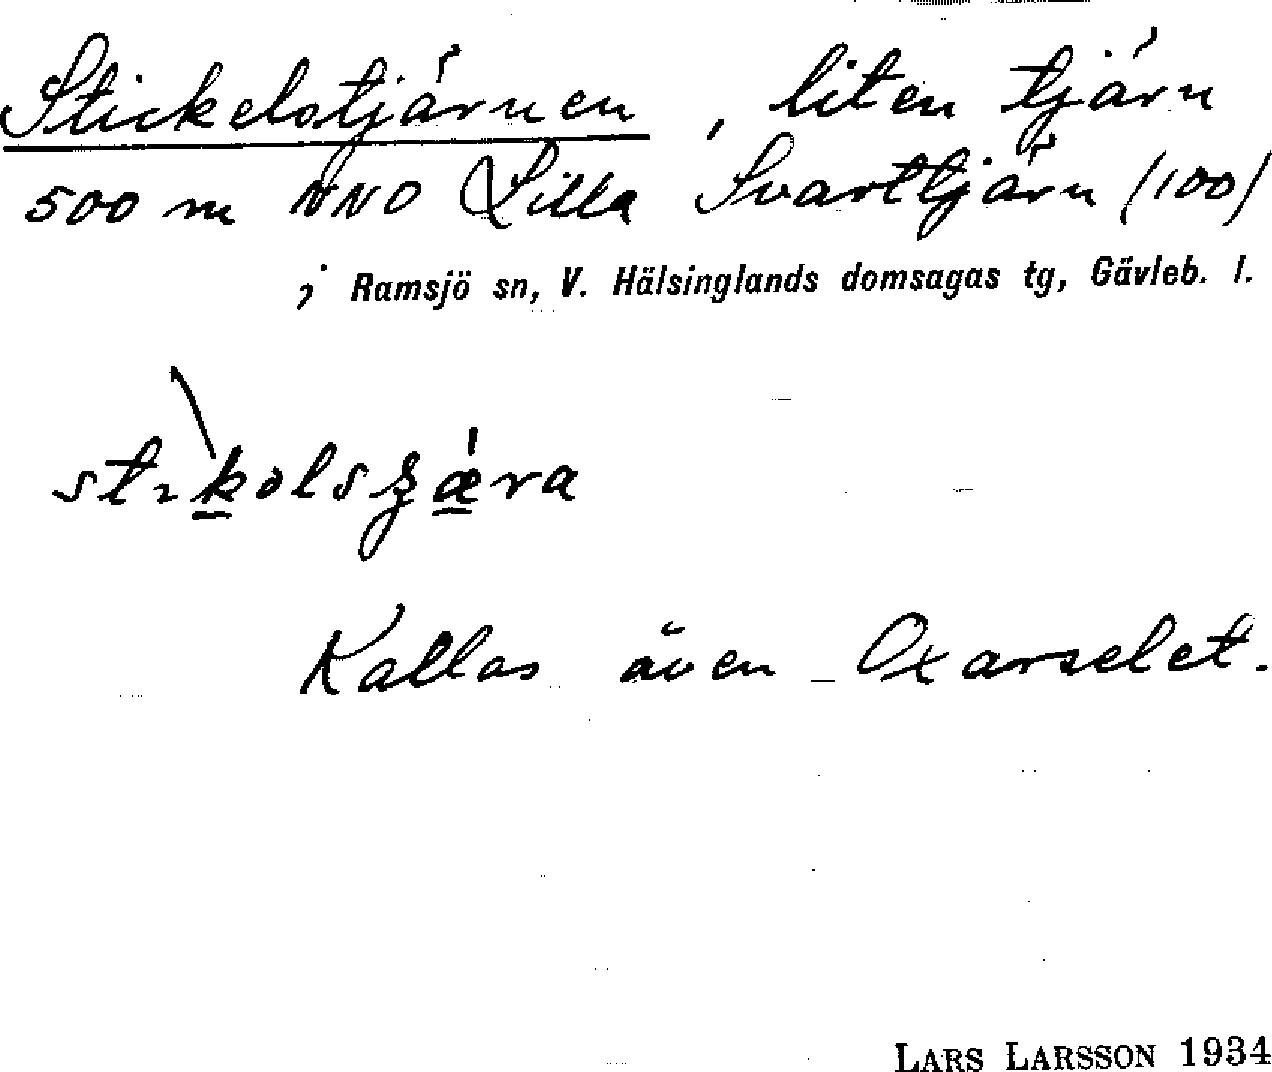 Stickelstjärnen, liten tjärn
500 m NNO Lilla Svarttjärn (100)
i Ramsjö sn, V. Hälsinglands domsagas tg, Gävleb. l.
Kallas även Oxarselet.
LARS LARSSON 1934